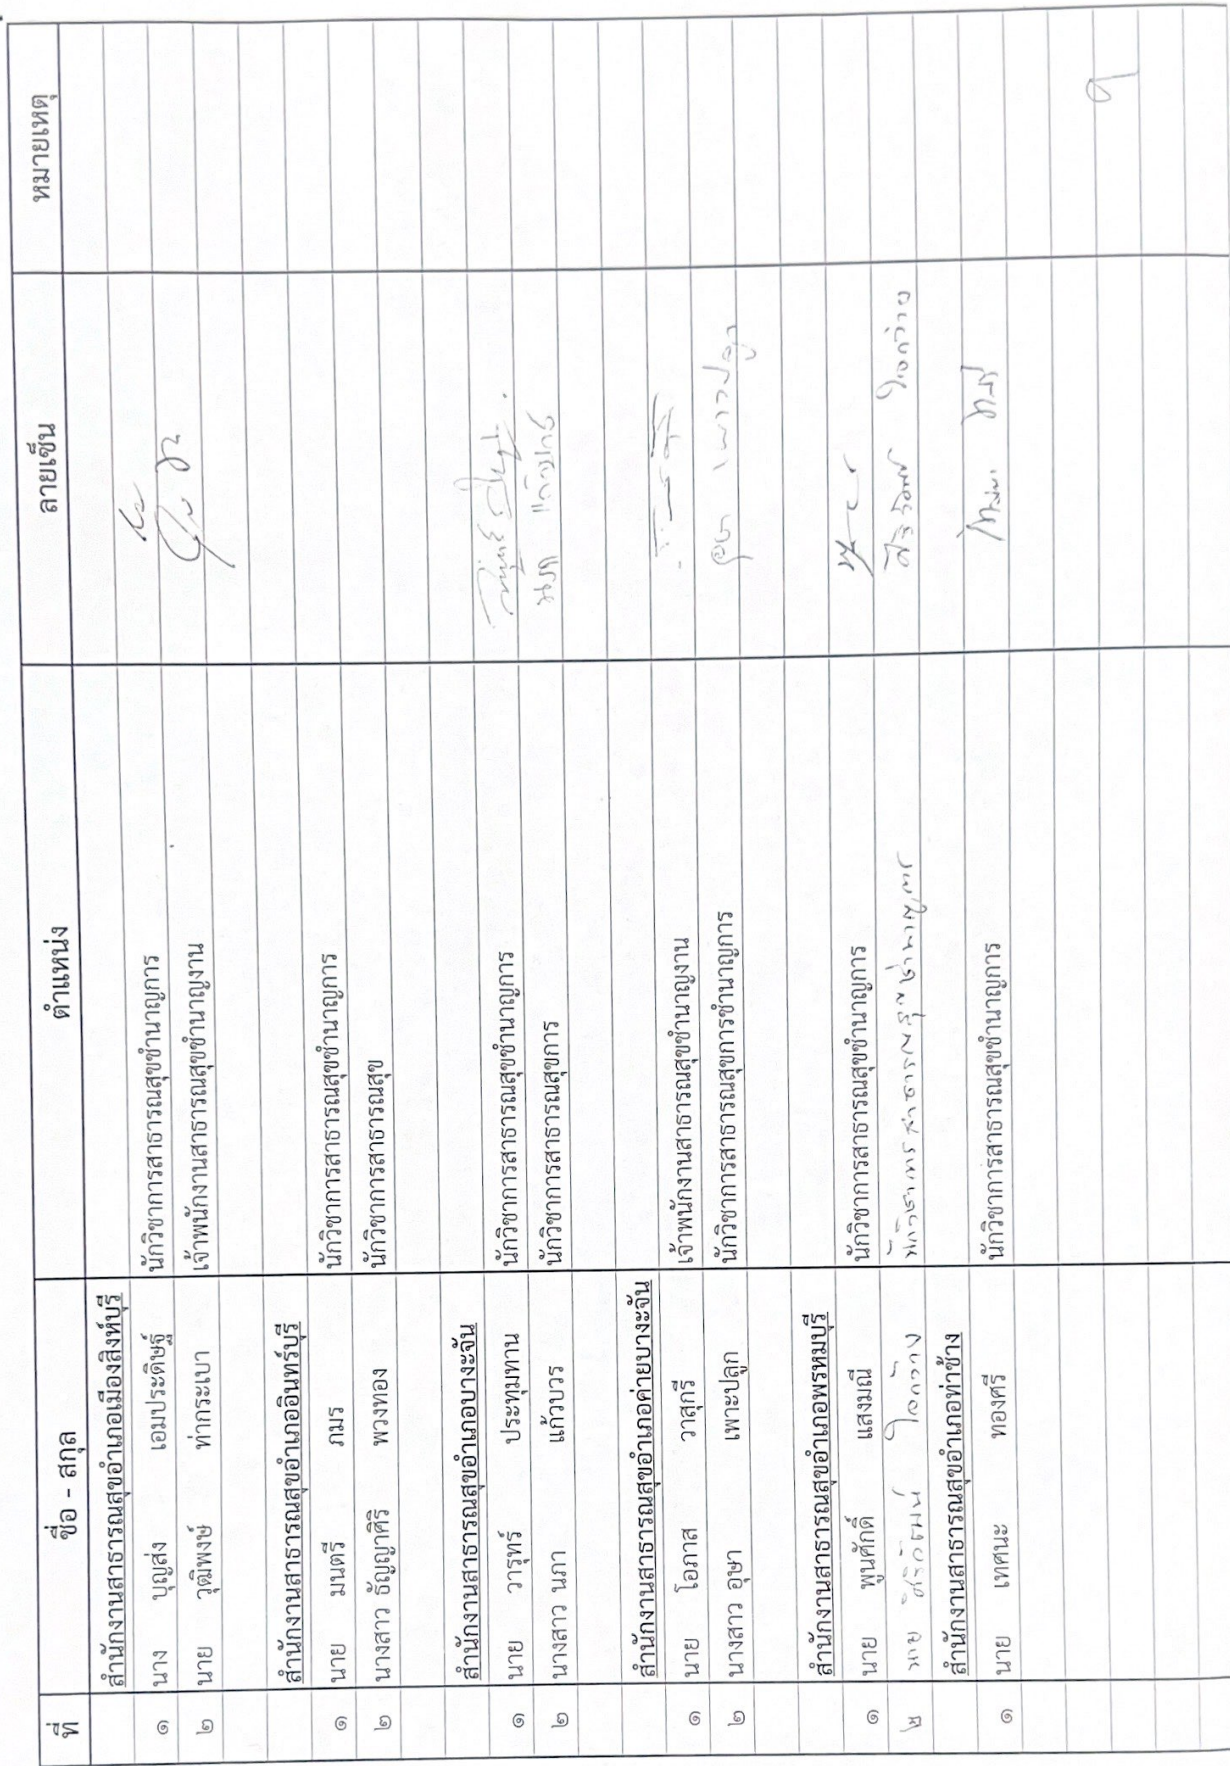 ที่ ชื่อ - สกุล ตำแหน่ง ลายเซ็น หมายเหตุ
สำนักงานสาธารณสุขอำเภอเมืองสิงห์บุรี
๑ นาง บุญส่ง เอมประดิษฐ์ นักวิชาการสาธารณสุขชำนาญการ
๒ นาย วุฒิพงษ์ ท่ากระเบา เจ้าพนักงานสาธารณสุขชำนาญงาน
สำนักงานสาธารณสุขอำเภออินทร์บุรี
๑ นาย มนตรี ภมร นักวิชาการสาธารณสุขชำนาญการ
๒ นางสาว ธัญญาศิริ พวงทอง นักวิชาการสาธารณสุข
สำนักงานสาธารณสุขอำเภอบางะจัน
๑ นาย วารุทร์ ประทุมทาน นักวิชาการสาธารณสุขชำนาญการ
๒ นางสาว นภา แก้วบวร นักวิชาการสาธารณสุขการ
สำนักงานสาธารณสุขอำเภอค่ายบางะจัน
๑ นาย โอภาส วาสุกรี เจ้าพนักงานสาธารณสุขชำนาญงาน
๒ นางสาว อุษา เพาะปลูก นักวิชาการสาธารณสุขการชำนาญการ อุษา เพาะปลูก
สำนักงานสาธารณสุขอำเภอพรหมบุรี
๑ นาย พูนศักดิ์ แสงมณี นักวิชาการสาธารณสุขชำนาญการ
๒ นาย นักวิชาการสาธารณสุขชำนาญการ
สำนักงานสาธารณสุขอำเภอท่าช้าง
๑ นาย เทศนะ ทองศรี นักวิชาการสาธารณสุขชำนาญการ